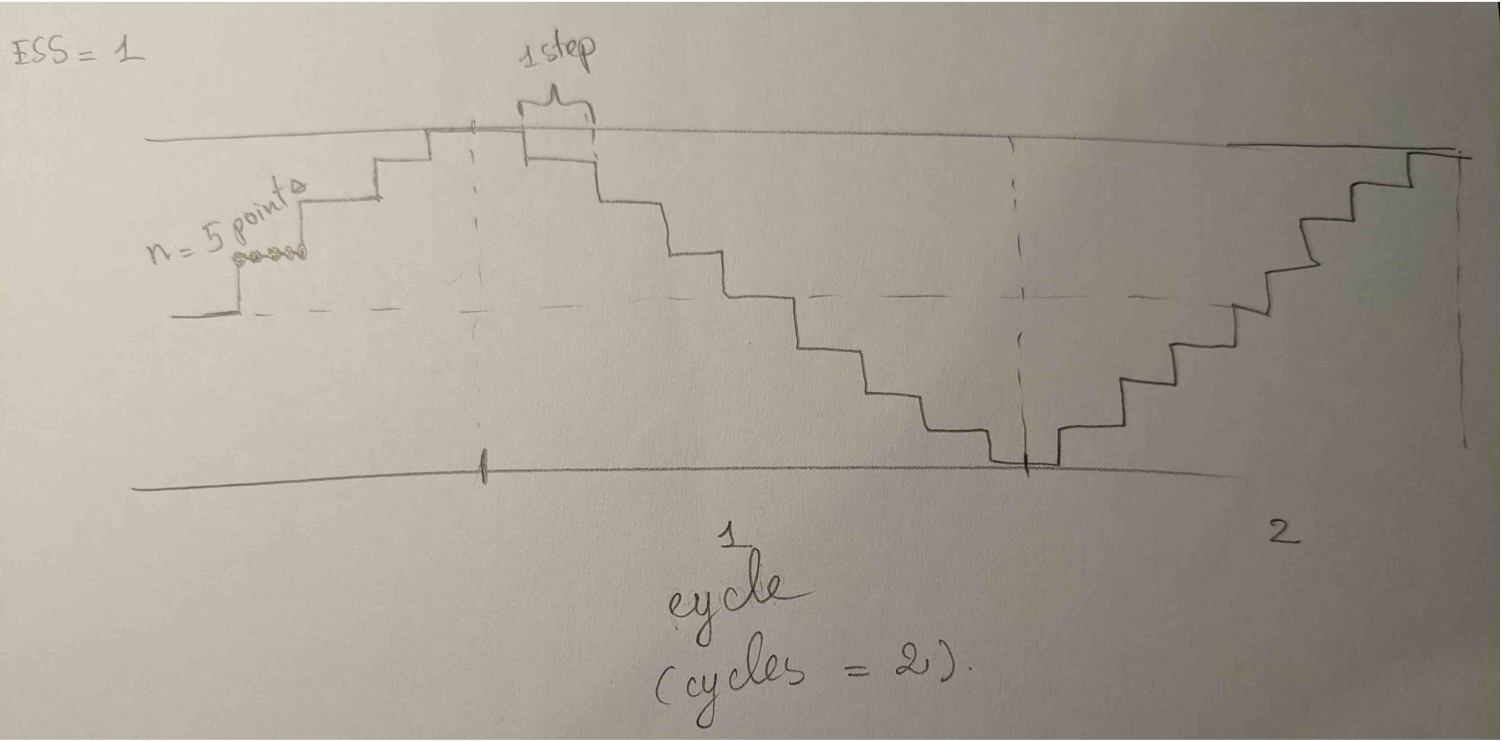 ESS = 1
1 step
n = 5 points
1
2
cycle
(cycles = 2).